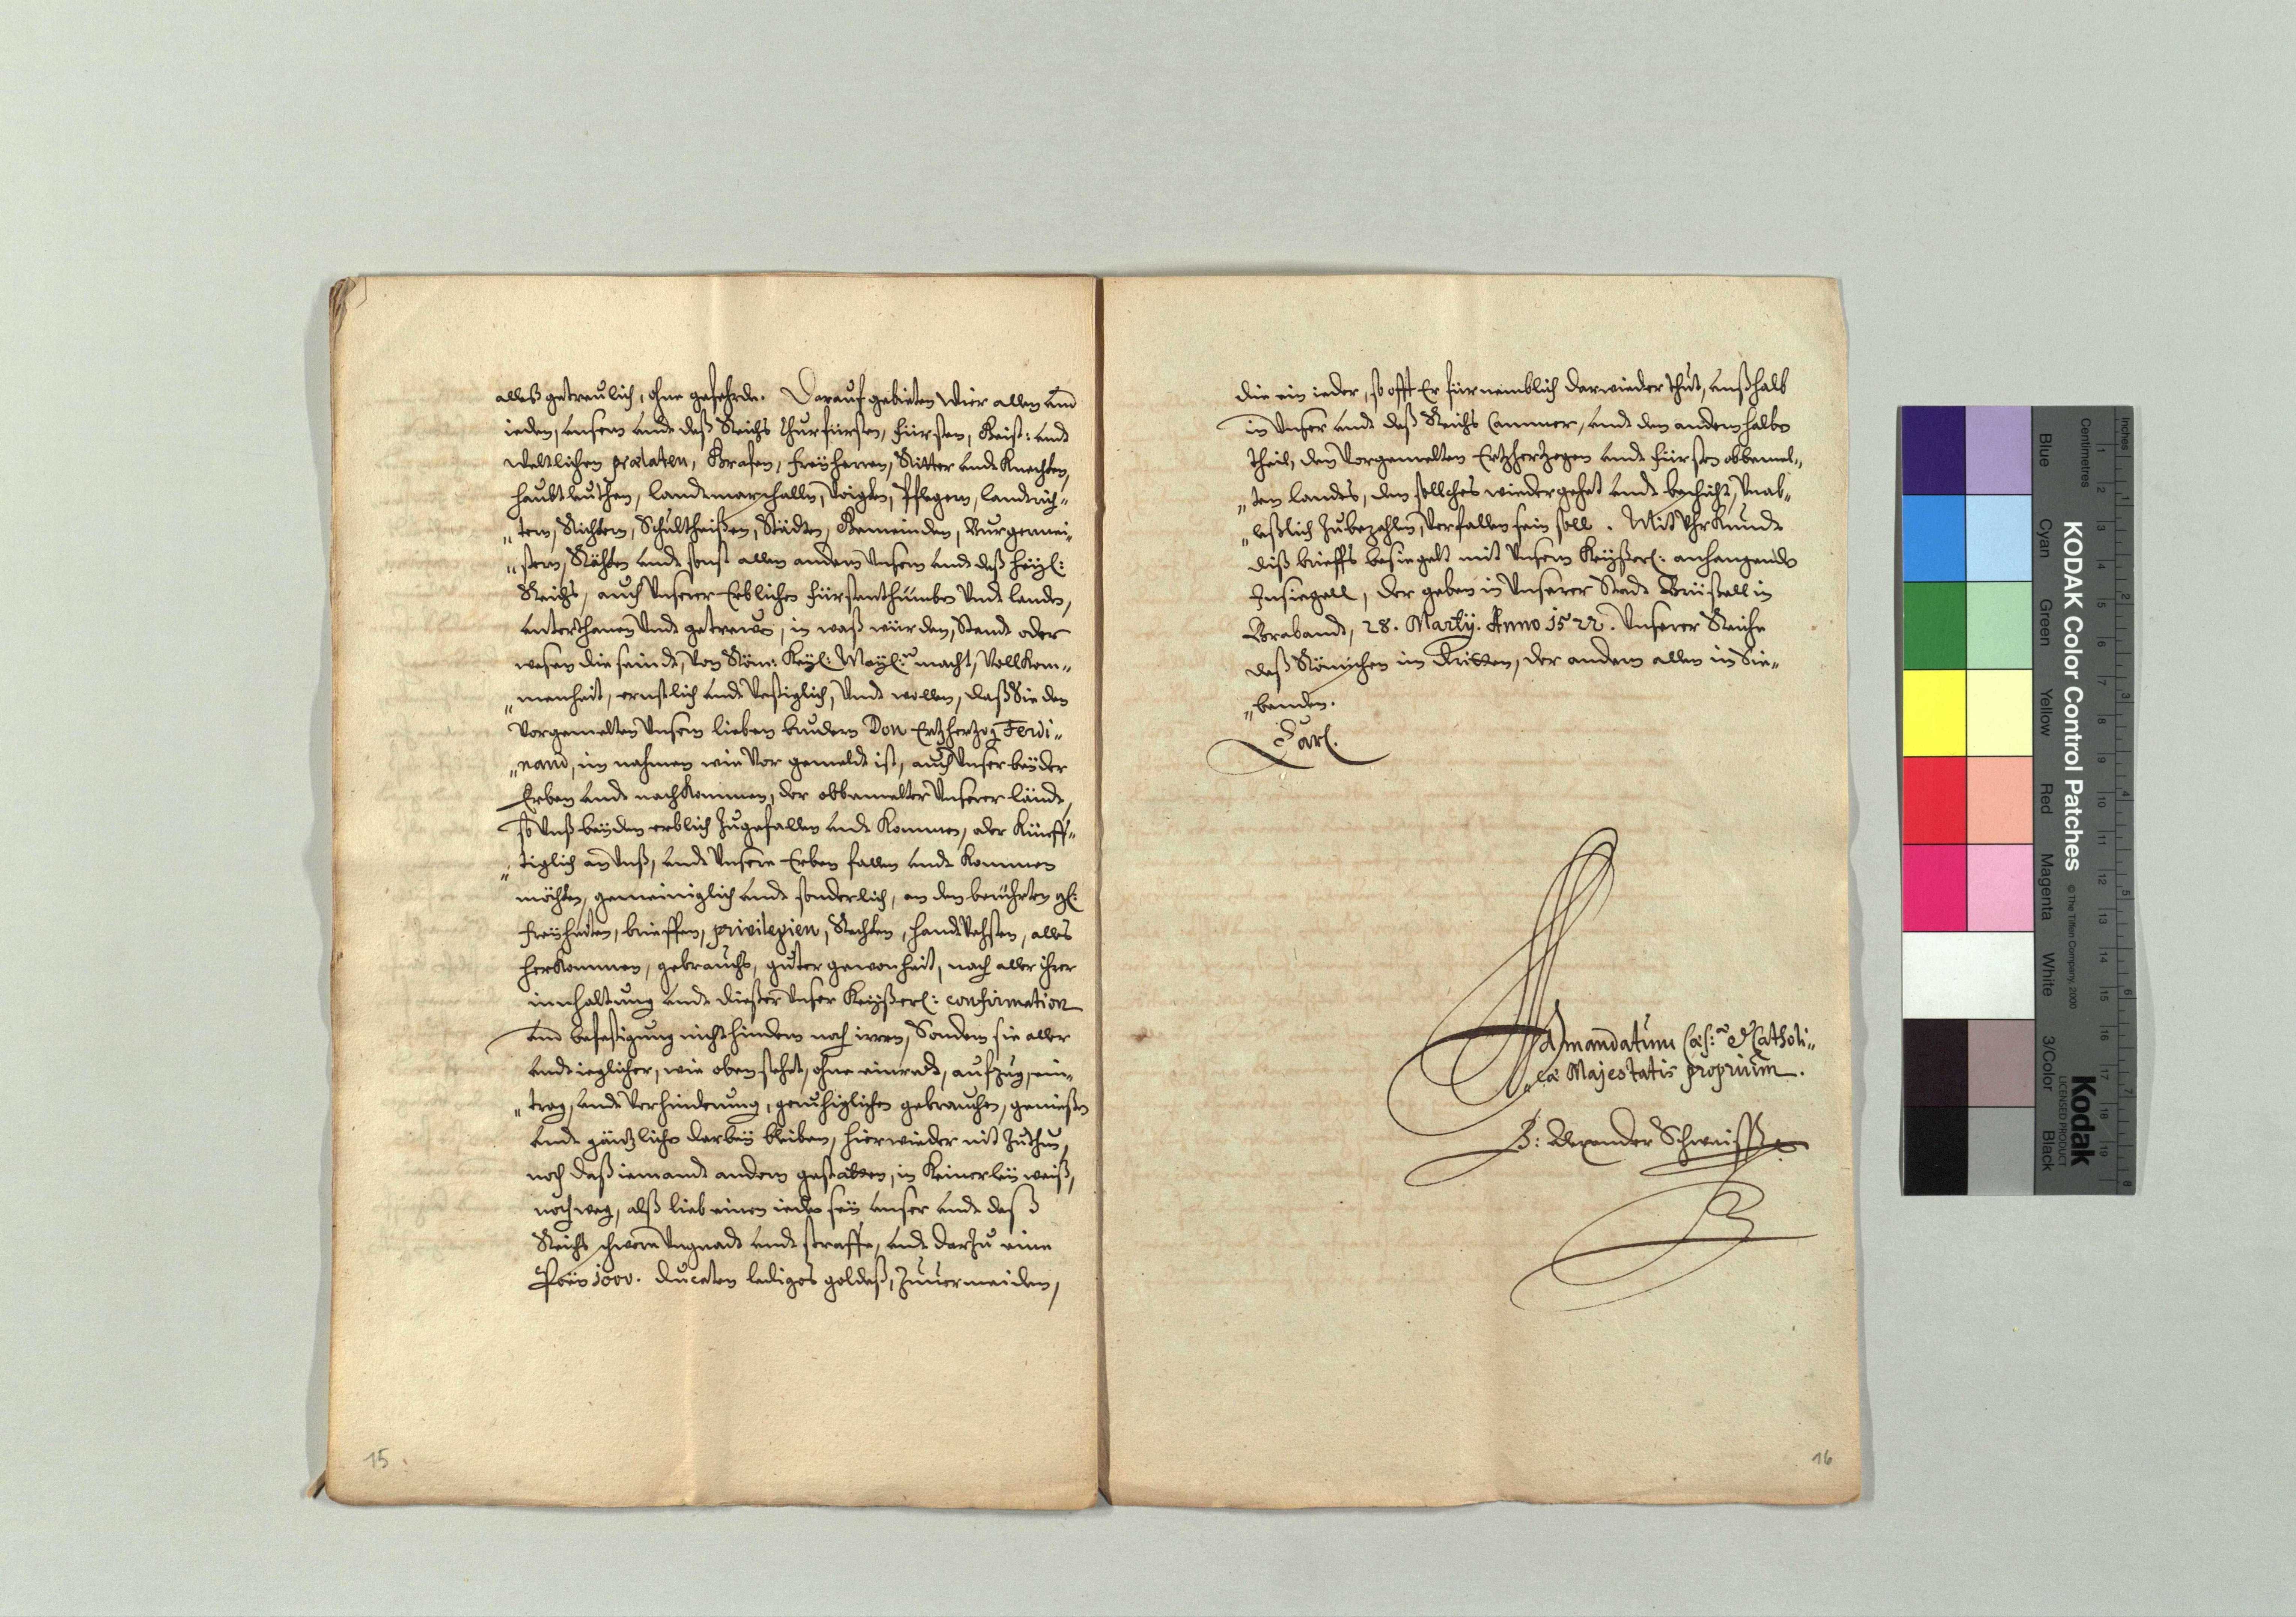 alleß getreulich, ohne gefehrde. Darauf gebieten Wier allen und
ieden, unsern undt deß Reichs Churfürsten, Fürsten, Geist: undt
Weltlichen prælaten, Grafen, Freÿherren, Ritter undt Knechten,
Haubtleuthen, Landtmarschalln, Voigten, Pflegern, Landtrich-
"tern, Richtern, Schultheißen, Städten, Gemeinden, Burgermei-
"stern, Räthen undt sonst allen andern Unsern undt deß Heÿl:
Reichs, auch Unserer Erblichen Fürstenthumben Undt landen,
unterthanen Undt getrewen, in waß würden, Standt oder
wesen die seindt, Von Röm: Keÿ: Maÿl: macht, Vollkom-
"menheit, ernstlich undt Vestiglich, Undt wollen, daß Sie den
Vorgemelten Unsern lieben brudern Don Ertzhertzog Ferdi-
"nand, im nahmen wie Vor gemeldt ist, auch Unser beÿder
Erben undt nachkommen, der obbemelter Unserer lände,
so Unß beÿden erblich Zugefallen undt kommen, oder künff-
"tiglich an Unß, undt Unsere Erben fallen undt kommen
möchten, gemeiniglich undt sonderlich, an den berührten
Freÿheiten, brieffen, privilegien, Rechten, handtVesten, altes
herkommen, gebrauchs, guter gewonheit, nach aller ihrer
innhaltung undt dießer Unser Keÿßerl: confirmation
und befestigung nicht hindern noch irren, Sondern sie aller
undt ieglicher, wie oben stehet, ohne einredt, aufzug, ein-
"trag, undt Verhinderung, geruhiglichen gebrauchen, genießen
undt gäntzlichen darbeÿ bleiben, hierwieder nit Zuthun,
noch daß iemandt andern gestatten, in keinerleÿ weiß,
noch weg, alß lieb einen ieden seÿ unser undt deß
Reichs schwere Ungnadt undt straffe, undt darzu eine
Pöen 1000. Ducaten lediges goldeß, Zuuermeiden,
15
die ein ieder, so offt Er fürnemblich darwieder thut, unß halb
in Unser undt deß Reichs Cammer, undt den andern halben
theil, den Vorgemelten Ertzhertzogen undt Fürsten obbemel-
"ten landes, dem sollches wiedergehet undt beschicht, Unab-
"leßlich Zubezahlen, Verfallen sein soll. Mit Uhrkundt
diß brieffs besiegelt mit Unserm Keÿßerl: anhangenden
Insiegell, der geben in Unserer Stadt Brüßell in
Brabandt, 28. Martÿ. Anno 1522. Unserer Reiche
deß Römischen im Dritten, der andern allen im Sie-
"benden.
Carl.
Ad mandatum Cæs: & Catholi-
"cæ Majestatis proprium.
Alexander Schweiß
16
Inches
Centimetres
KODAK Color Control Patches
© The Tiffen Company, 2000
Kodak
LICENSED PRODUCT
Blue
Cyan
Green
Yellow
Red
Magenta
White
3/Color
Black